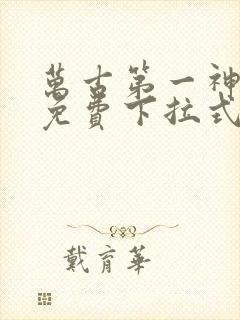 萬古第一神
免費下拉式
戴育華